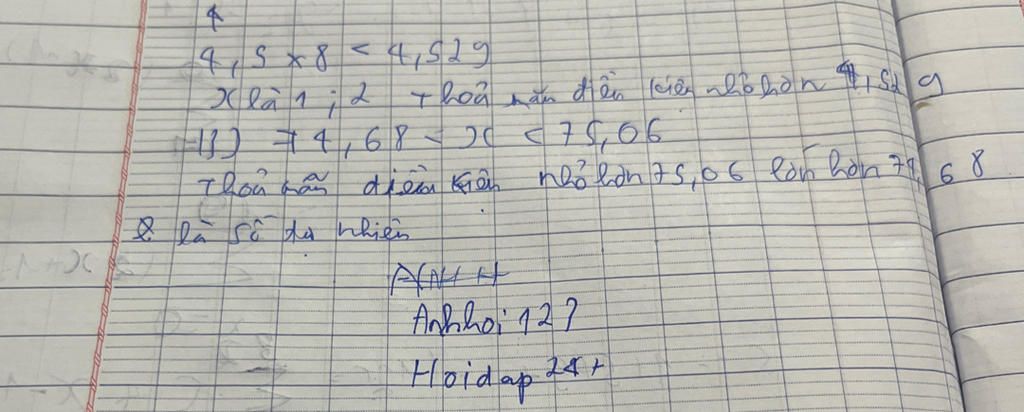 4
4,5 x 8 < 4,529
x là 1 ; 2 Thoả mãn điều kiện nhỏ hơn 4,529
B) 74,68 < x < 75,06
Thoả mãn điều kiện nhỏ hơn 75,06 lớn hơn 74,68
là số tự nhiên
Anhhoi 12?
Hoidap 24+